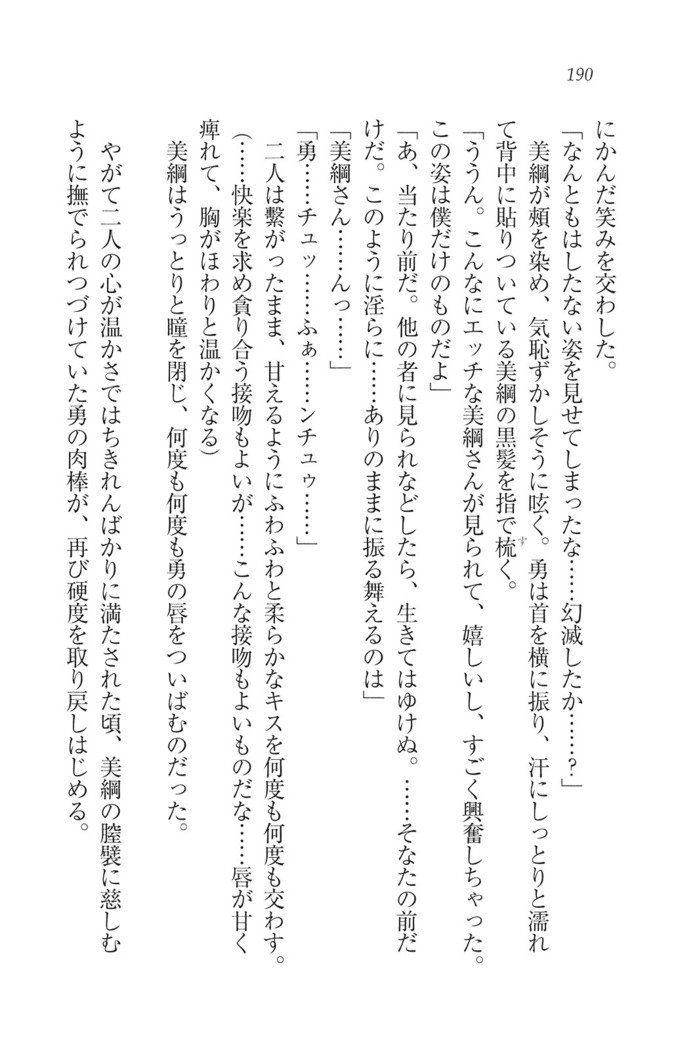 190
にかんだ笑みを交わした。
「なんともはしたない姿を見せてしまったな……幻滅したか……？」
美綱が頬を染め、気恥ずかしそうに呟く。勇は首を横に振り、汗にしっとりと濡れ
て背中に貼りついている美綱の黒髪を指で梳く。
「ううん。こんなにエッチな美綱さんが見られて、嬉しいし、すごく興奮しちゃった。
この姿は僕だけのものだよ」
「あ、当たり前だ。他の者に見られなどしたら、生きてはゆけぬ。……そなたの前だ
けだ。このように淫らに……ありのままに振る舞えるのは」
「美綱さん……んっ……」
「勇……チュッ……ふぁ……ンチュゥ……」
二人は繋がったまま、甘えるようにふわふわと柔らかなキスを何度も何度も交わす。
（……快楽を求め貪り合う接吻もよいが……こんな接吻もよいものだな……唇が甘く
痺れて、胸がほわりと温かくなる）
美綱はうっとりと瞳を閉じ、何度も何度も勇の唇をついばむのだった。
やがて二人の心が温かさではちきれんばかりに満たされた頃、美綱の膣襞に慈しむ
ように撫でられつづけていた勇の肉棒が、再び硬度を取り戻しはじめる。